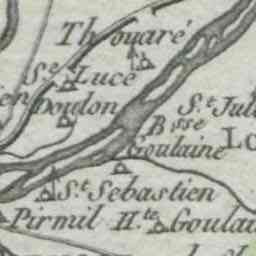 Thouaré
Ste Luce
Doulon
St Juli
Bsse
Goulaine
Lo
St Sebastien
Pirmil
Hte Goulai